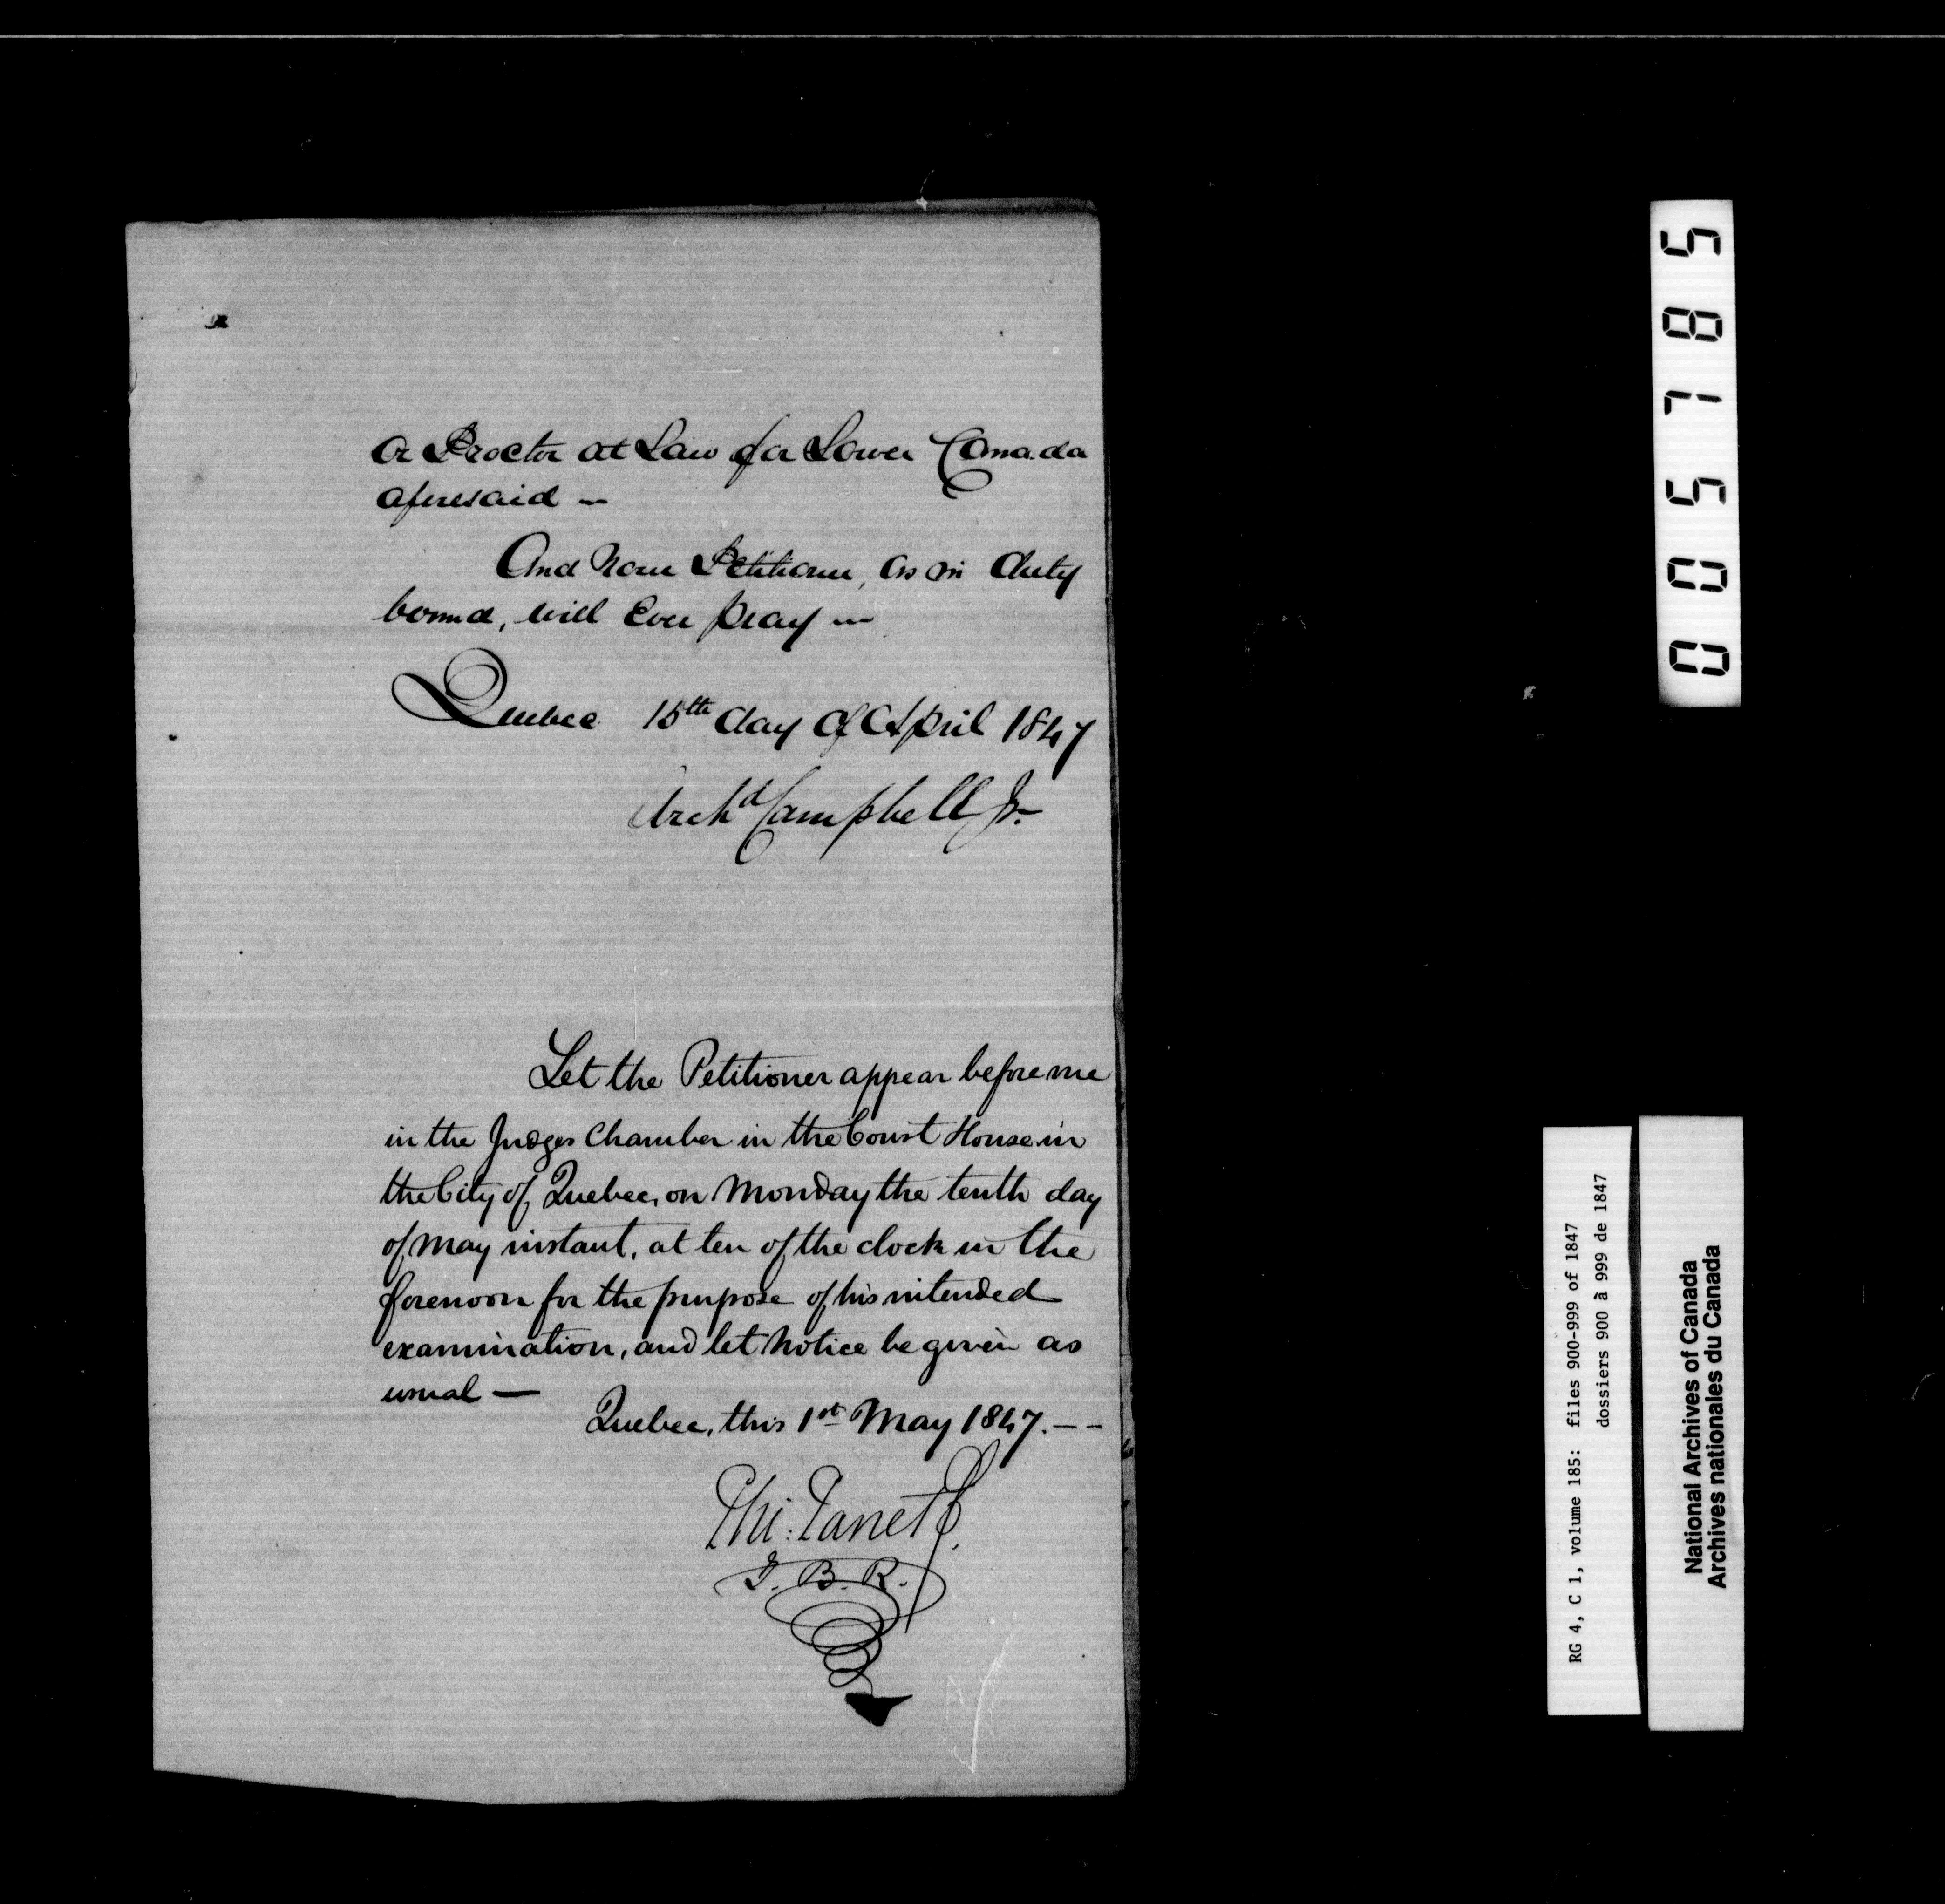 or Proctor at Law for Lower Canada
aforesaid —
And Your Petitioner, as in duty
bound, will Ever pray —
Quebec 15th day of April 1847
Archd Campbell Jr.
Let the Petitioner appear before me
in the Judges Chamber in the Court House in
the City of Quebec, on Monday the tenth day
of May instant, at ten of the clock in the
forenoon for the purpose of his intended
examination, and let notice be given as
usual —
Quebec, this 1st May 1847. — —
Phi: Panet
J. B. R.
005785
RG 4, C 1, volume 185: files 900-999 of 1847
dossiers 900 à 999 de 1847
National Archives of Canada
Archives nationales du Canada